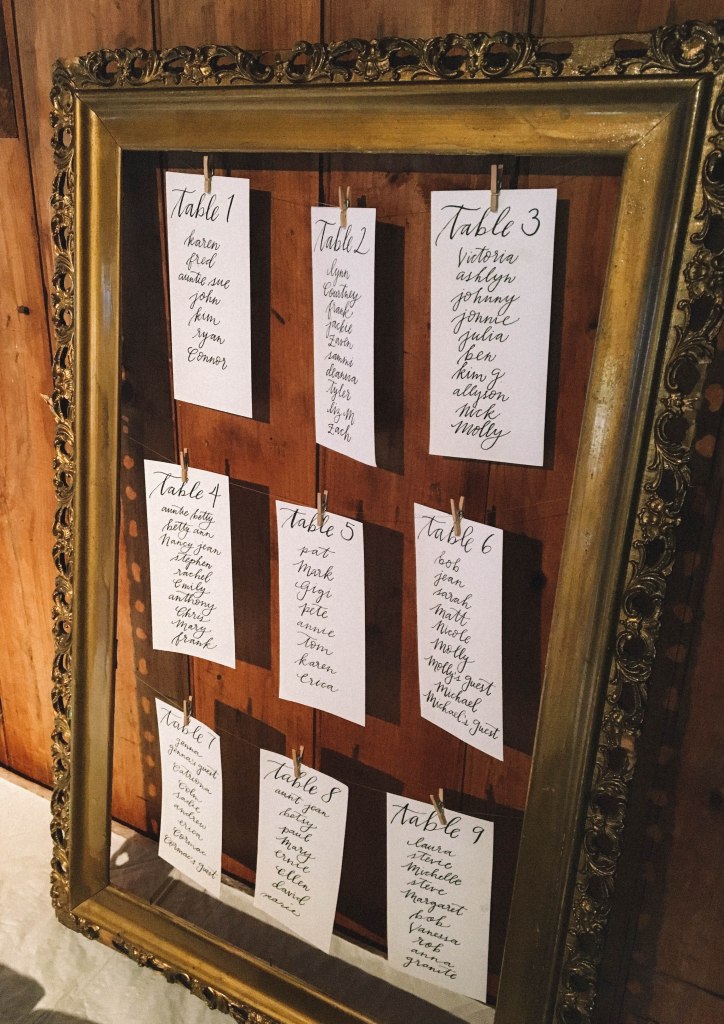 Table 1
karen
fred
auntie sue
john
kim
ryan
Connor
Table 2
lynn
Courtney
frank
jackie
Zaven
sammi
deanna
Tyler
Liz M
Zach
Table 3
Victoria
ashlyn
johnny
jonnie
julia
ben
kim g
allyson
Nick
Molly
Table 4
auntie betty
betty ann
Nancy jean
stephen
rachel
Emily
anthony
Chris
Mary
frank
Table 5
pat
Mark
Gigi
pete
annie
tom
karen
erica
Table 6
bob
jean
sarah
Matt
Nicole
Molly
Molly's guest
Michael
Michael's guest
Table 7
jenna's guest
Catriona
Colm
sadie
andrew
erica
Cormac
Cormac's guest
Table 8
aunt jean
betsy
paul
Mary
ernie
Ellen
david
marie
Table 9
laura
stevie
Michelle
steve
Margaret
bob
Vanessa
rob
anna
granite